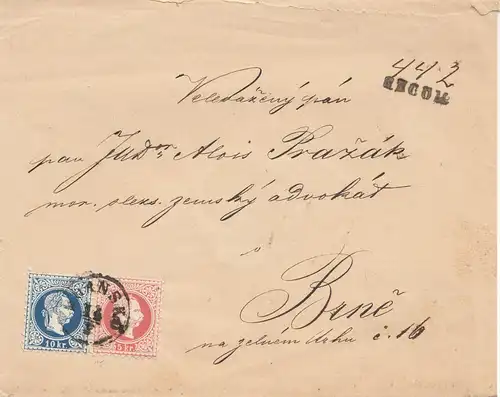 442
RECOM
Veledůžený pán
pan JUDor Alois Pražák
mor. slezs. zemský advokát
v
Brně
na zelném trhu č. 16
10 kr.
5 kr.